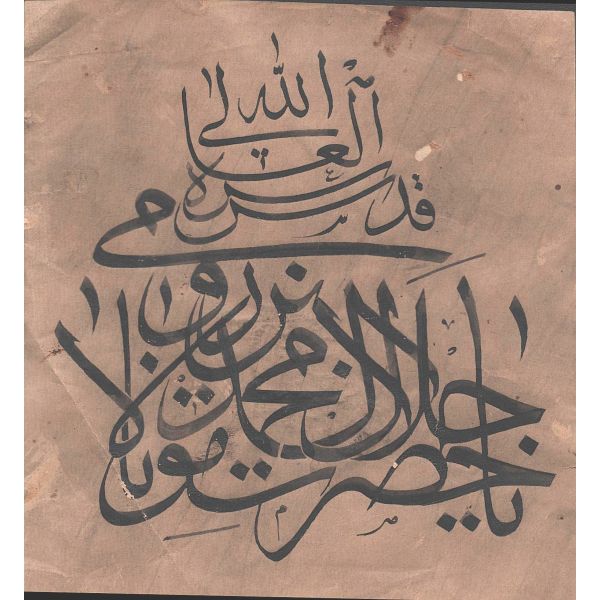 يا حضرت مولانا
جلال الدين محمد رومى
قدس الله سره العالى